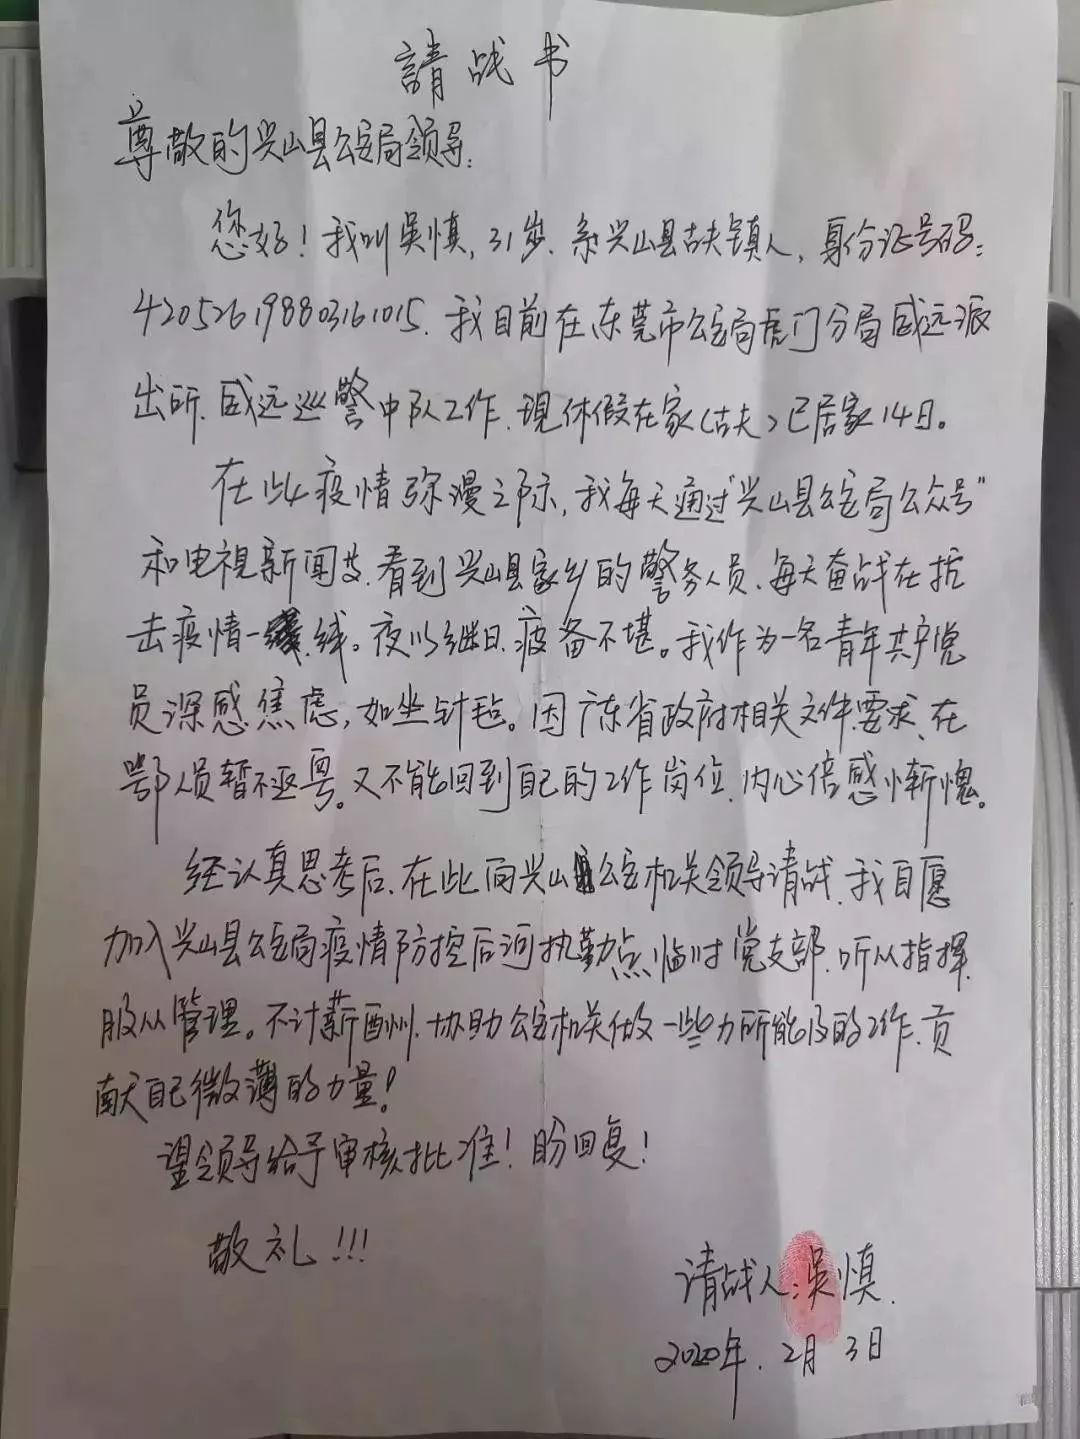 請战书
尊敬的兴山县公安局领导：
您好！我叫吴慎，31岁，系兴山县古夫镇人，身份证号码：
420526198803161015。我目前在东莞市公安局虎门分局威远派
出所、威远巡警中队工作，现休假在家（古夫）已居家14日。
在此疫情弥漫之际，我每天通过“兴山县公安局公众号”
和电视新闻，看到兴山县家乡的警务人员，每天奋战在抗
击疫情一线。夜以继日，疲备不堪。我作为一名青年共产党
员深感焦虑，如坐针毡。因广东省政府相关文件要求，在
鄂人员暂不返粤。又不能回到自己的工作岗位，内心倍感惭愧。
经认真思考后，在此向兴山县公安机关领导请战，我自愿
加入兴山县公安局疫情防控后河执勤点临时党支部，听从指挥
服从管理。不计薪酬，协助公安机关做一些力所能及的工作，贡
献自己微薄的力量！
望领导给予审核批准！盼回复！
敬礼!!!
请战人：吴慎
2020年2月3日